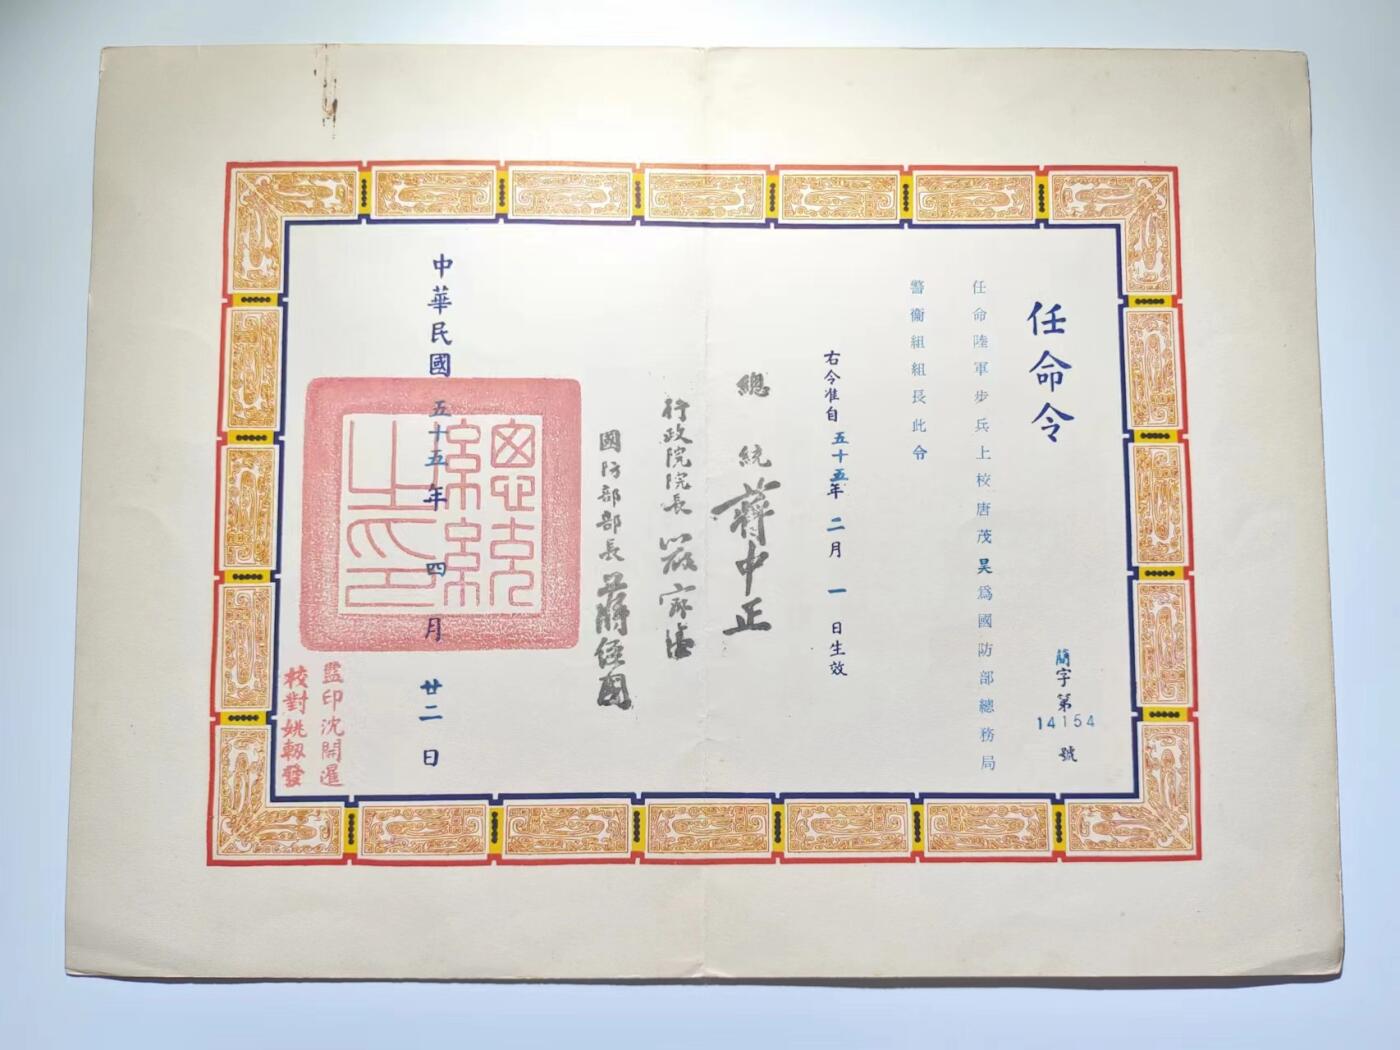 任命令
簡字第14154號
任命陸軍步兵上校唐茂昊爲國防部總務局
警衞組組長此令
右令准自五十五年二月一日生效
總統 蔣中正
行政院院長 嚴家淦
國防部部長 蔣經國
中華民國五十五年四月廿二日
總統之印
監印沈開暹
校對姚轫發